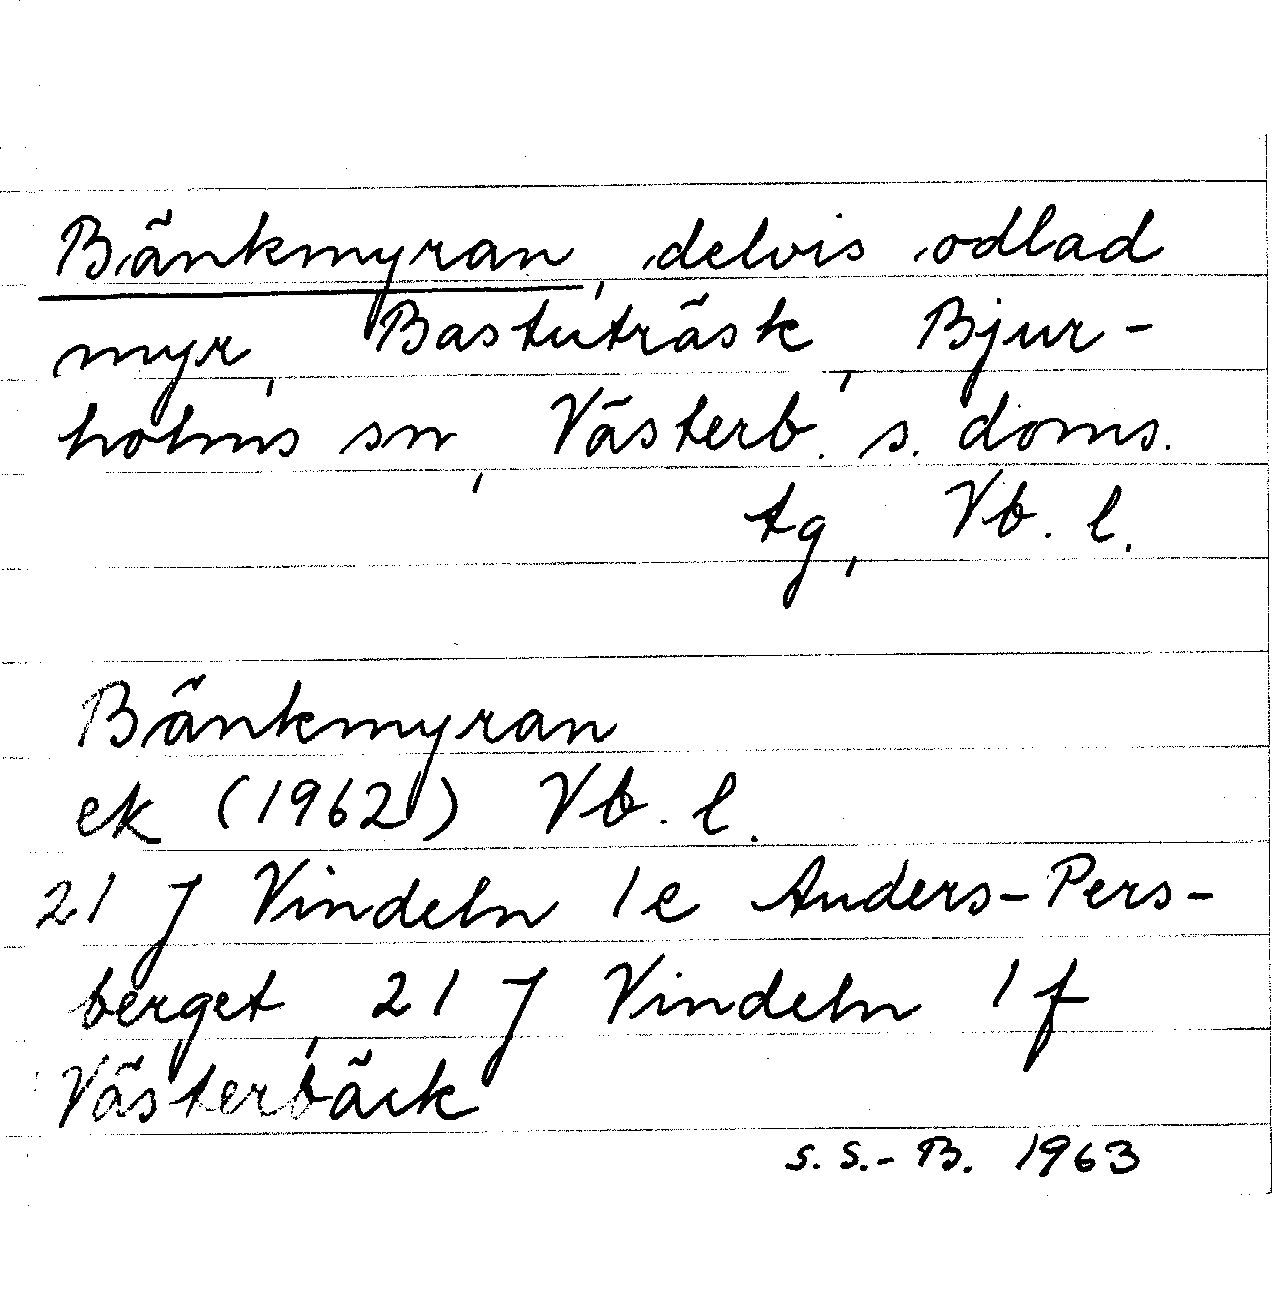 Bänkmyran, delvis odlad
myr, Bastuträsk, Bjur-
holms sn, Västerb. s. doms.
tg, Vb. l.
Bänkmyran
ek (1962) Vb. l.
21 J Vindeln 1e Anders-Pers-
berget, 21 J Vindeln 1f
Västerbäck
S. S.-B. 1963